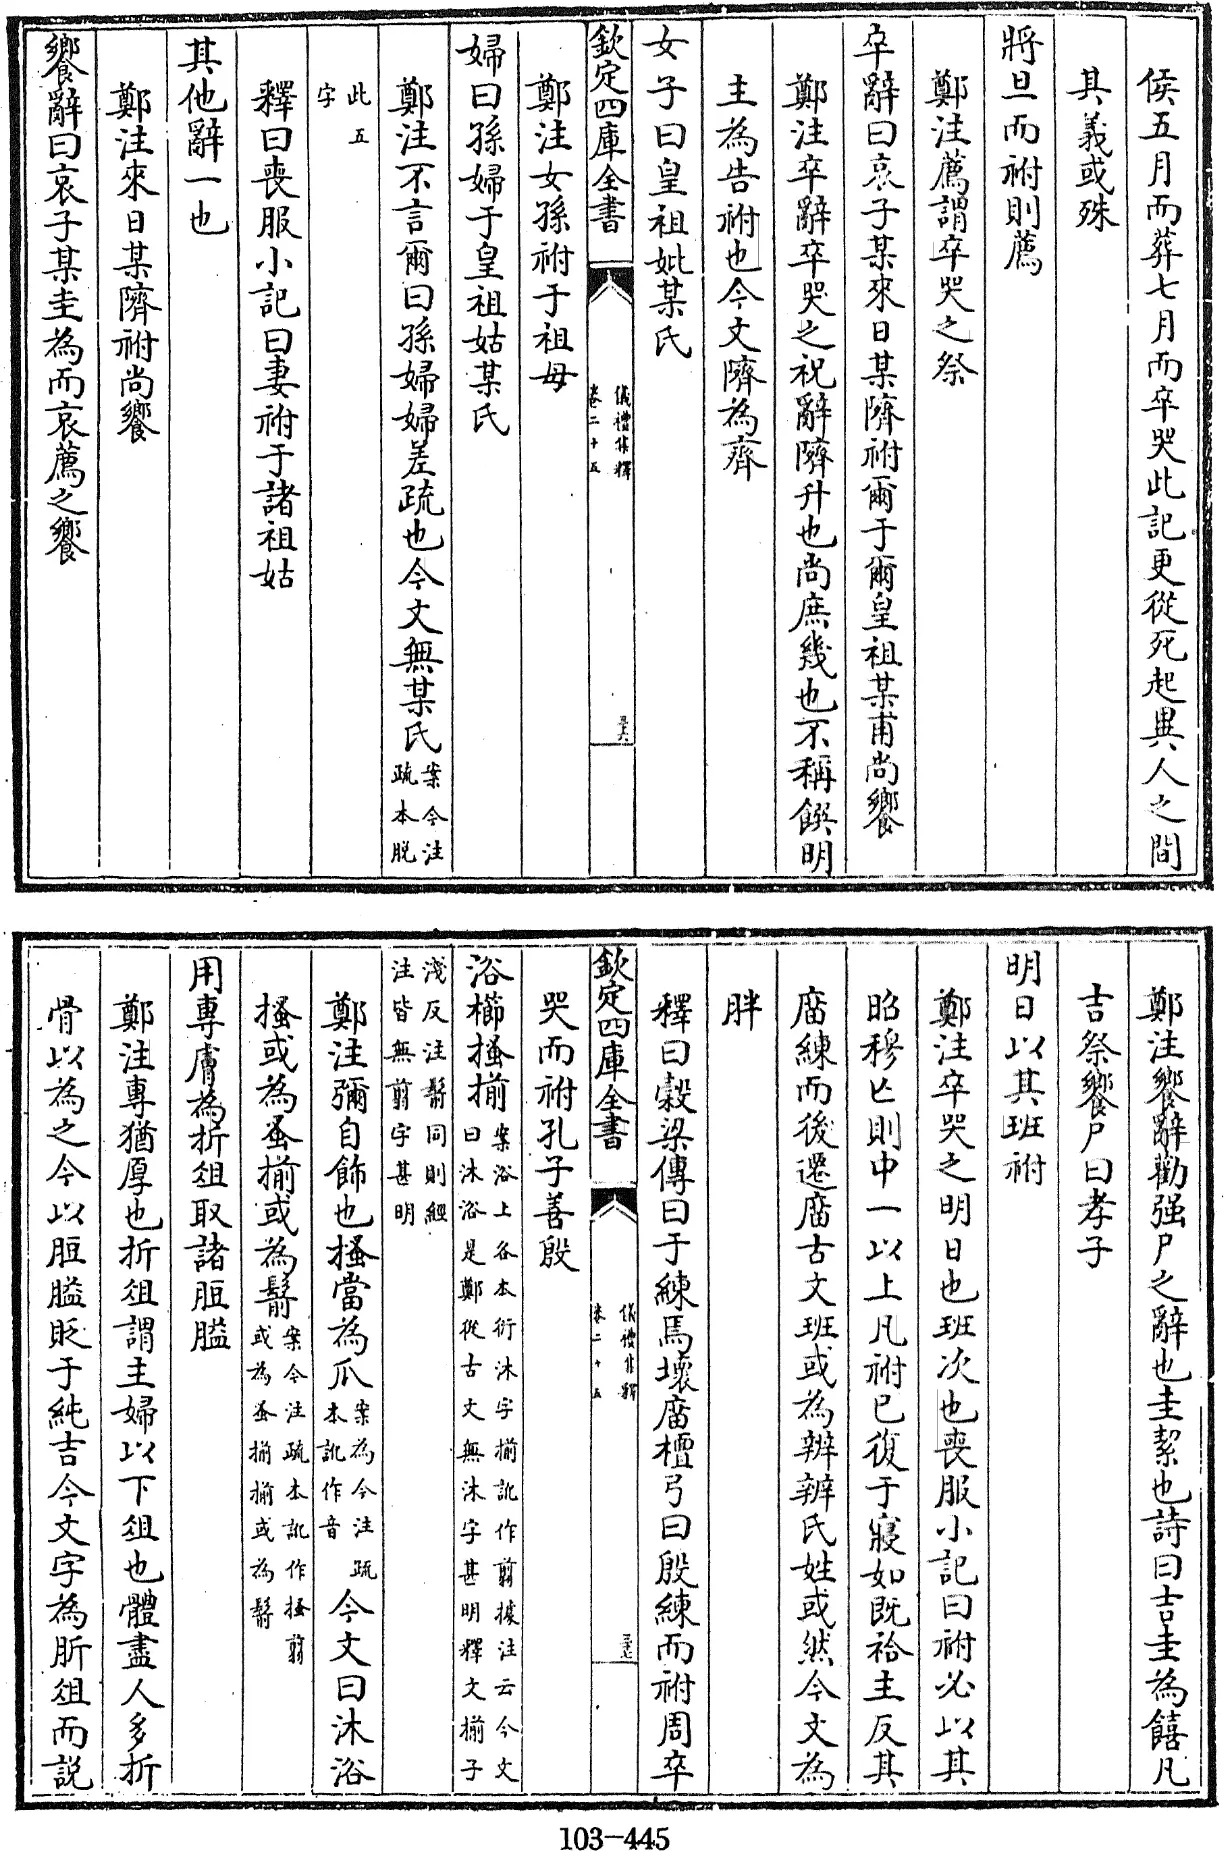 侯五月而葬七月而卒哭此記更從死起異人之間
其義或殊
將旦而祔則薦
鄭注薦謂卒哭之祭
卒辭曰哀子某來日某隮祔爾于爾皇祖某甫尚饗
鄭注卒辭卒哭之祝辭隮升也尚庶幾也不稱饌明
主為告祔也今文隮為齊
女子曰皇祖妣某氏
欽定四庫全書
儀禮集釋
卷二十五
三六
鄭注女孫祔于祖母
婦曰孫婦于皇祖姑某氏
鄭注不言爾曰孫婦婦差疏也今文無某氏案今注
疏本脱
此五
字
釋曰喪服小記曰妻祔于諸祖姑
其他辭一也
鄭注來日某隮祔尚饗
饗辭曰哀子某圭為而哀薦之饗
鄭注饗辭勸强尸之辭也圭絜也詩曰吉圭為饎凡
吉祭饗尸曰孝子
明日以其班祔
鄭注卒哭之明日也班次也喪服小記曰祔必以其
昭穆亡則中一以上凡祔已復于寢如既祫主反其
廟練而後遷廟古文班或為辨辨氏姓或然今文為
胖
釋曰穀梁傳曰于練焉壞廟檀弓曰殷練而祔周卒
欽定四庫全書
儀禮集釋
卷二十五
三七
哭而祔孔子善殷
浴櫛搔揃案浴上各本衍沐字揃訛作翦據注云今文
曰沐浴是鄭從古文無沐字甚明釋文揃子
淺反注鬋同則經
注皆無翦字甚明
鄭注彌自飾也搔當為爪案為今注疏
本訛作音今文曰沐浴
搔或為蚤揃或為鬋案今注疏本訛作搔翦
或為蚤揃揃或為鬋
用專膚為折俎取諸脰膉
鄭注專猶厚也折俎謂主婦以下俎也體盡人多折
骨以為之今以脰膉貶于純吉今文字為肵俎而説
103-445